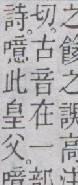 之之誤高
切。古音在一部
詩。噫此皇父。噫